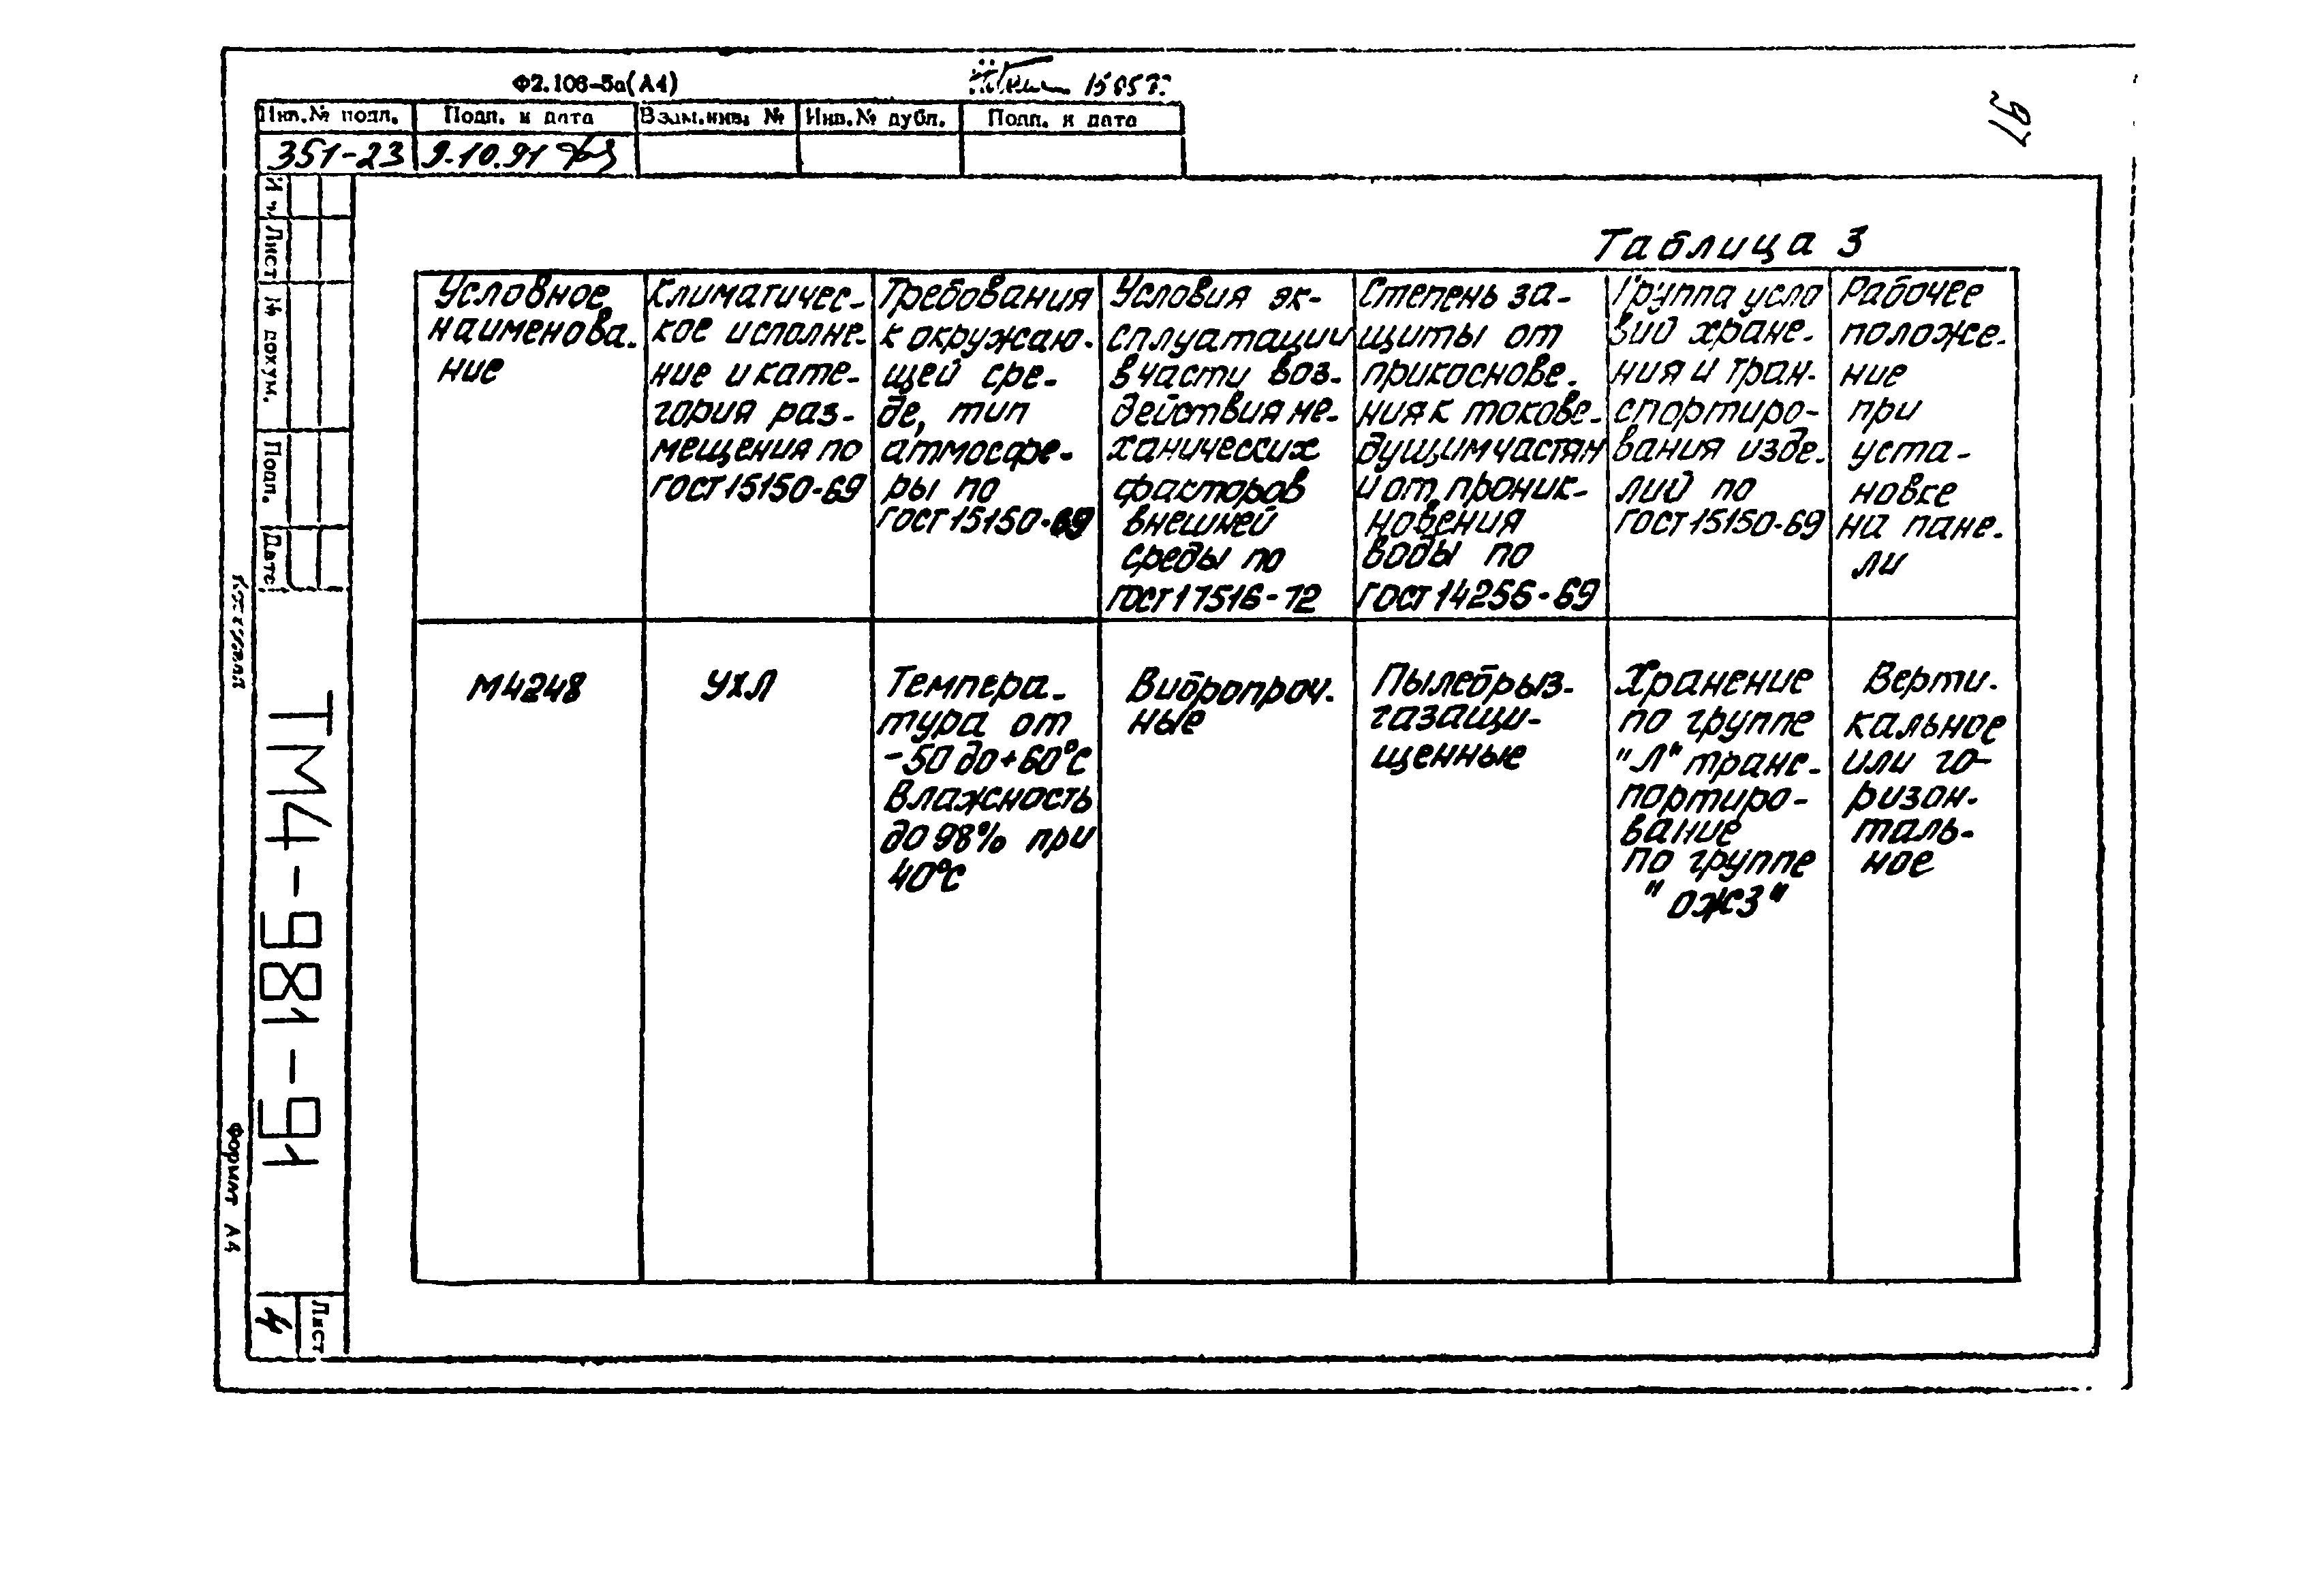 Ф2.106-5а(А4)
15 05
97
Инв.№ подл. Подп. и дата Взам.инв. № Инв.№ дубл. Подп. и дата
351-23 9.10.91
Лист № докум. Подп. Дата
Таблица 3
Условное
наименова-
ние
Климатичес-
кое исполне-
ние и кате-
гория раз-
мещения по
ГОСТ15150-69
Требования
к окружаю-
щей сре-
де, тип
атмосфе-
ры по
ГОСТ15150-69
Условия эк-
сплуатации
в части воз-
действия ме-
ханических
факторов
внешней
среды по
ГОСТ17516-72
Степень за-
щиты от
прикоснове-
ния к токове-
дущим частям
и от проник-
новения
воды по
ГОСТ14256-69
Группа усло
вий хране-
ния и тран-
спортиро-
вания изде-
лий по
ГОСТ15150-69
Рабочее
положе-
ние
при
уста-
новке
на пане-
ли
М4248
УХЛ
Темпера-
тура от
-50 до+60°С
Влажность
до 98% при
40°С
Вибропроч-
ные
Пылебрыз-
газащи-
щенные
Хранение
по группе
"Л" транс-
портиро-
вание
по группе
"ОЖ3"
Верти-
кальное
или го-
ризон-
таль-
ное
ТМ4-981-91
Лист
4
Формат А4